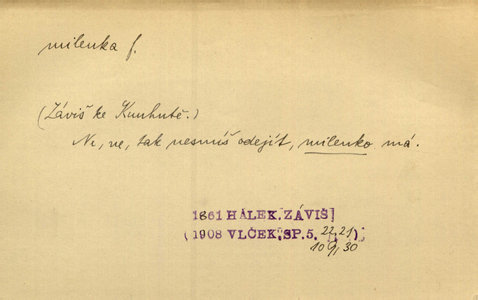 milenka f.
(Záviš ke Kunhutě.)
Ne, ne, tak nesmíš odejít, milenko má.
1861 HÁLEK, ZÁVIŠ
(1908 VLČEK, SP. 5,